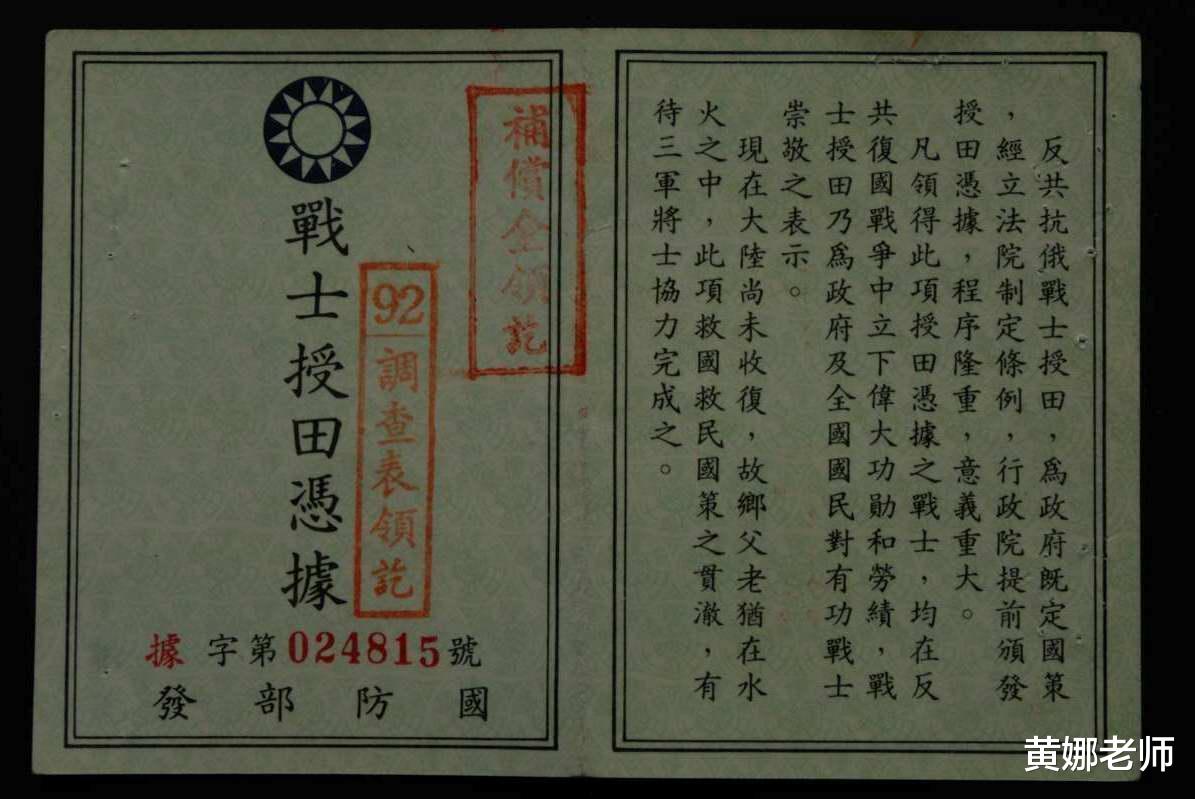 戰士授田憑據
補償金領訖
92
調查表領訖
據字第024815號
國防部發
反共抗俄戰士授田，爲政府既定國策
，經立法院制定條例，行政院提前頒發
授田憑據，程序隆重，意義重大。
凡領得此項授田憑據之戰士，均在反
共復國戰爭中立下偉大功勛和勞績，戰
士授田乃爲政府及全國國民對有功戰士
崇敬之表示。
現在大陸尚未收復，故鄉父老猶在水
火之中，此項救國救民國策之貫澈，有
待三軍將士協力完成之。
黄娜老师